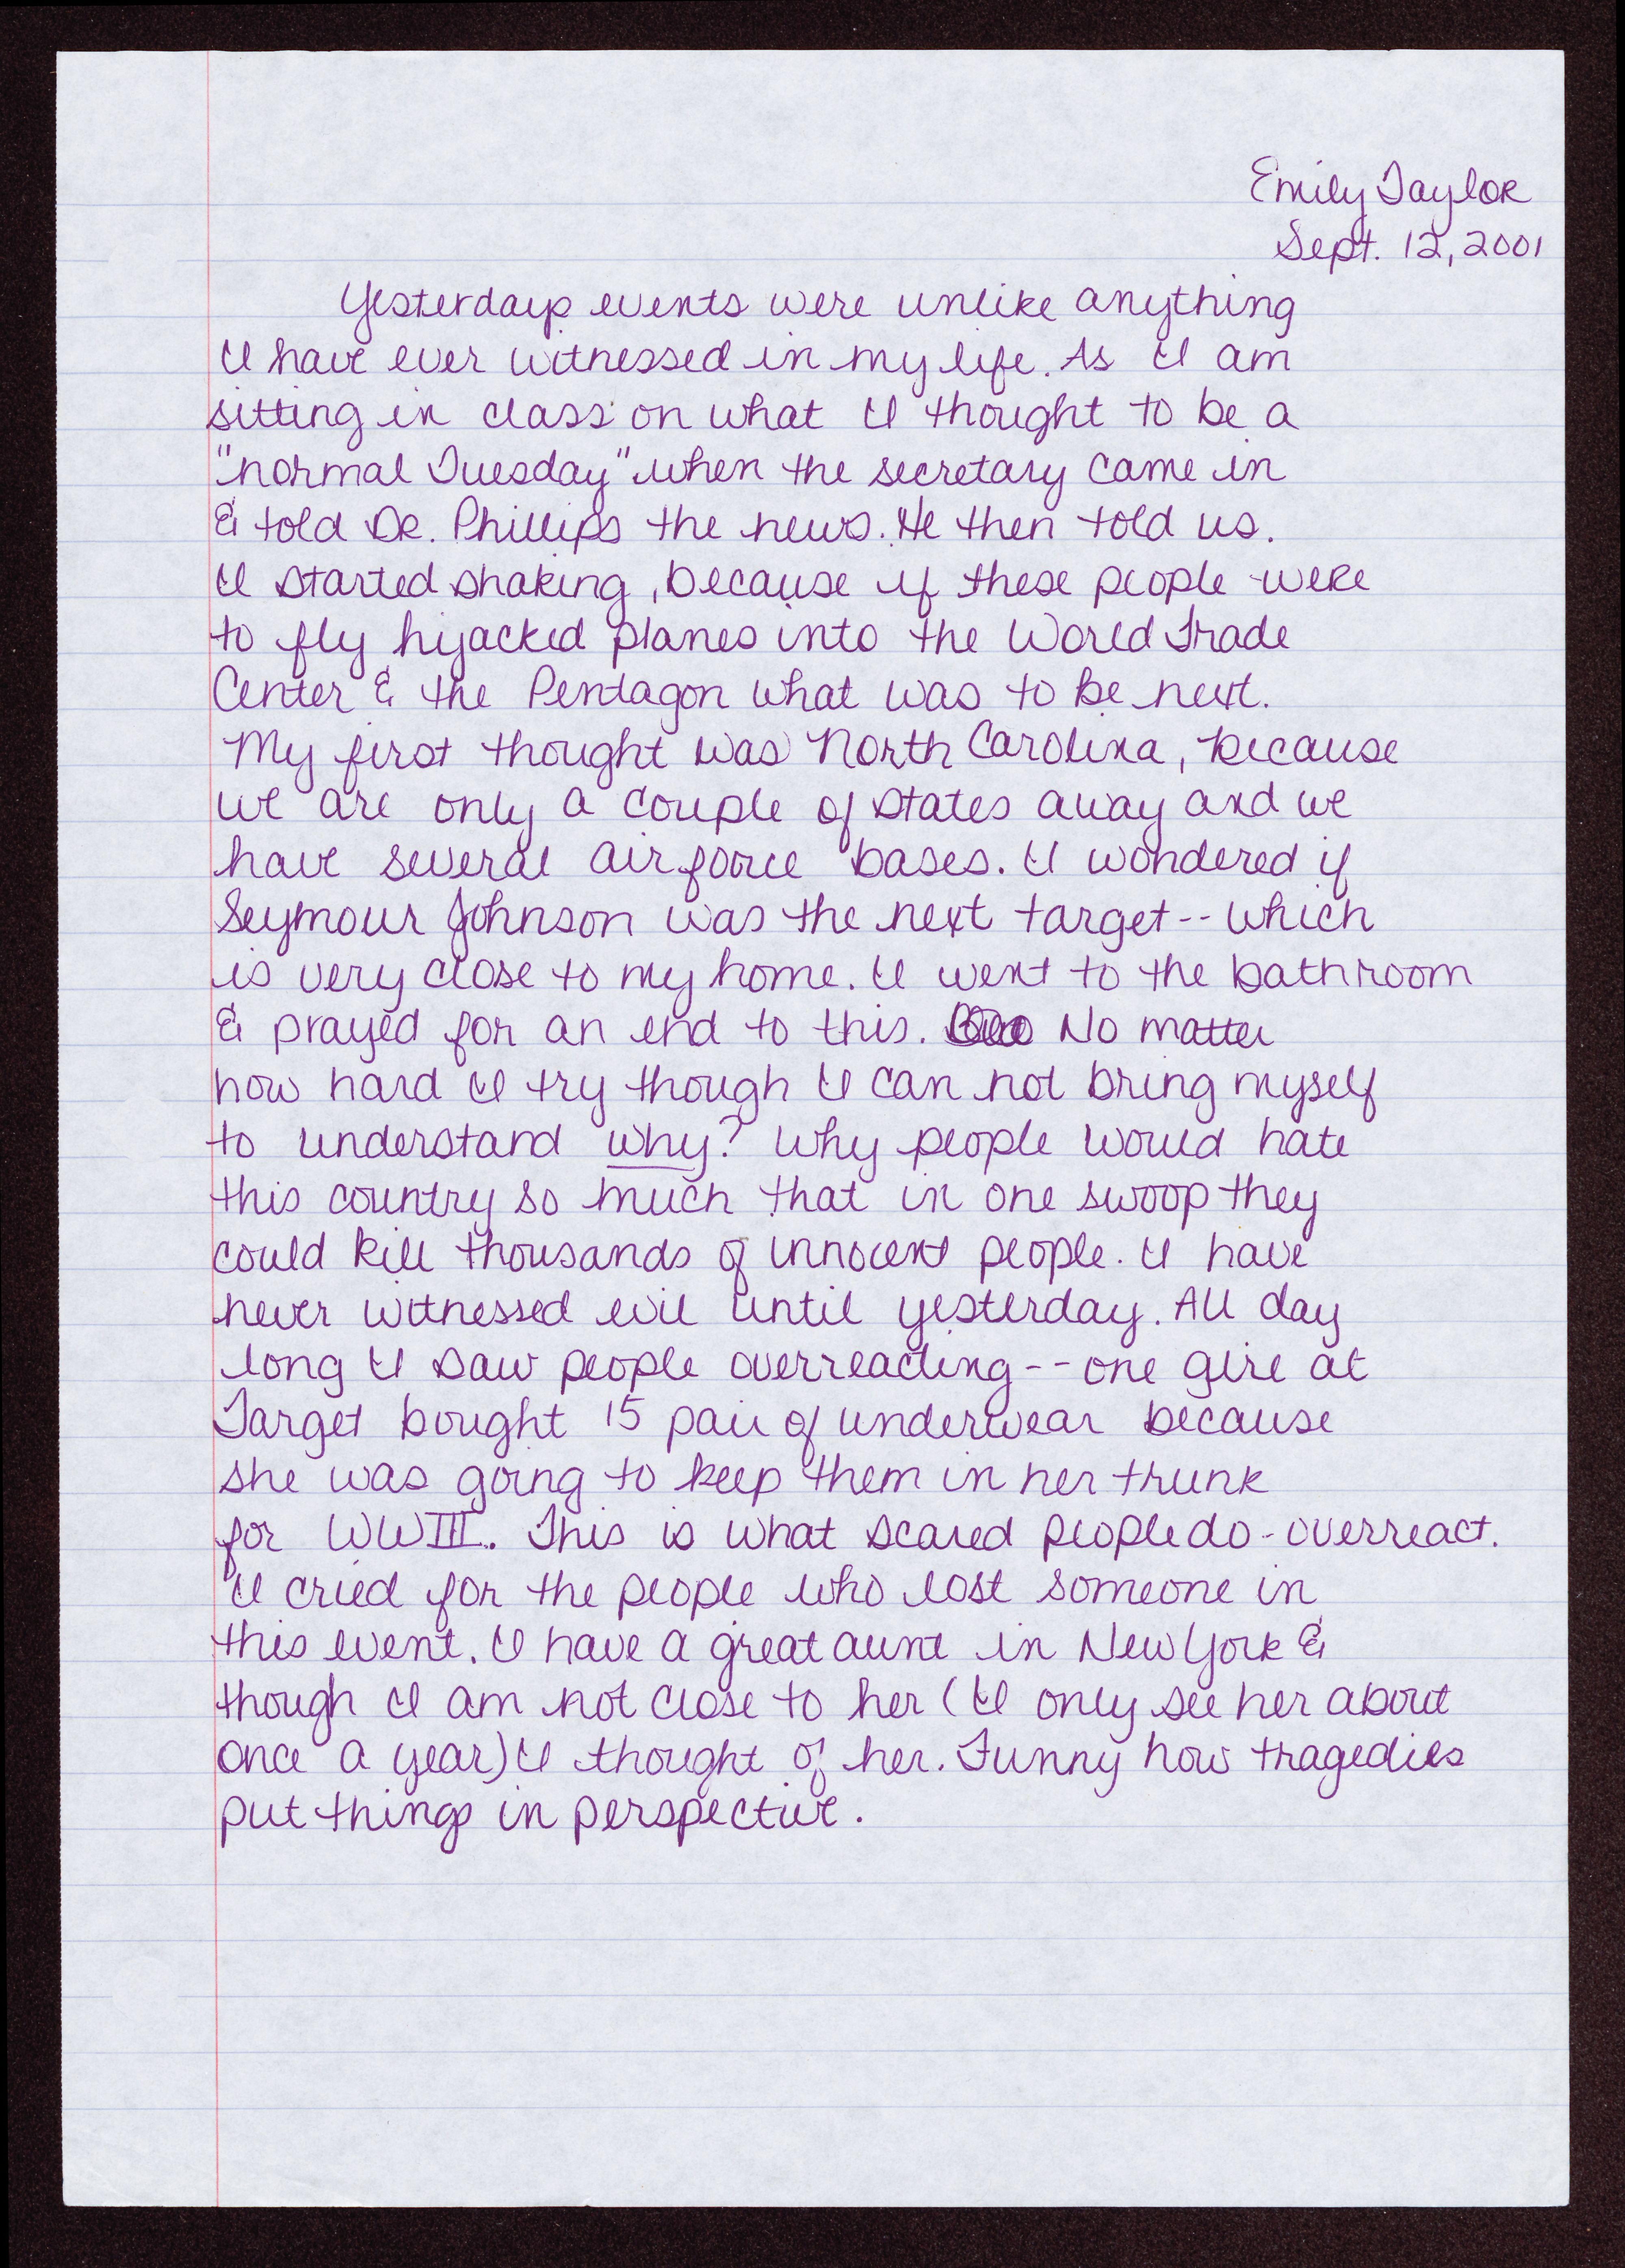 Emily Taylor
Sept. 12, 2001
Yesterdays events were unlike anything
I have ever witnessed in my life. As I am
sitting in class on what I thought to be a
"normal Tuesday" when the secretary came in
& told Dr. Phillips the news. He then told us.
I started shaking, because if these people were
to fly hijacked planes into the World Trade
Center & the Pentagon what was to be next.
My first thought was North Carolina, because
we are only a couple of states away and we
have several air foorce bases. I wondered if
Seymour Johnson was the next target -- which
is very close to my home. I went to the bathroom
& prayed for an end to this. No matter
how hard I try though I can not bring myself
to understand why? Why people would hate
this country so much that in one swoop they
could kill thousands of innocent people. I have
never witnessed evil until yesterday. All day
long I saw people overreacting -- one girl at
Target bought 15 pair of underwear because
she was going to keep them in her trunk
for WWIII. This is what scared people do - overreact.
I cried for the people who lost someone in
this event. I have a great aunt in New York &
though I am not close to her (I only see her about
once a year) I thought of her. Funny how tragedies
put things in perspective.